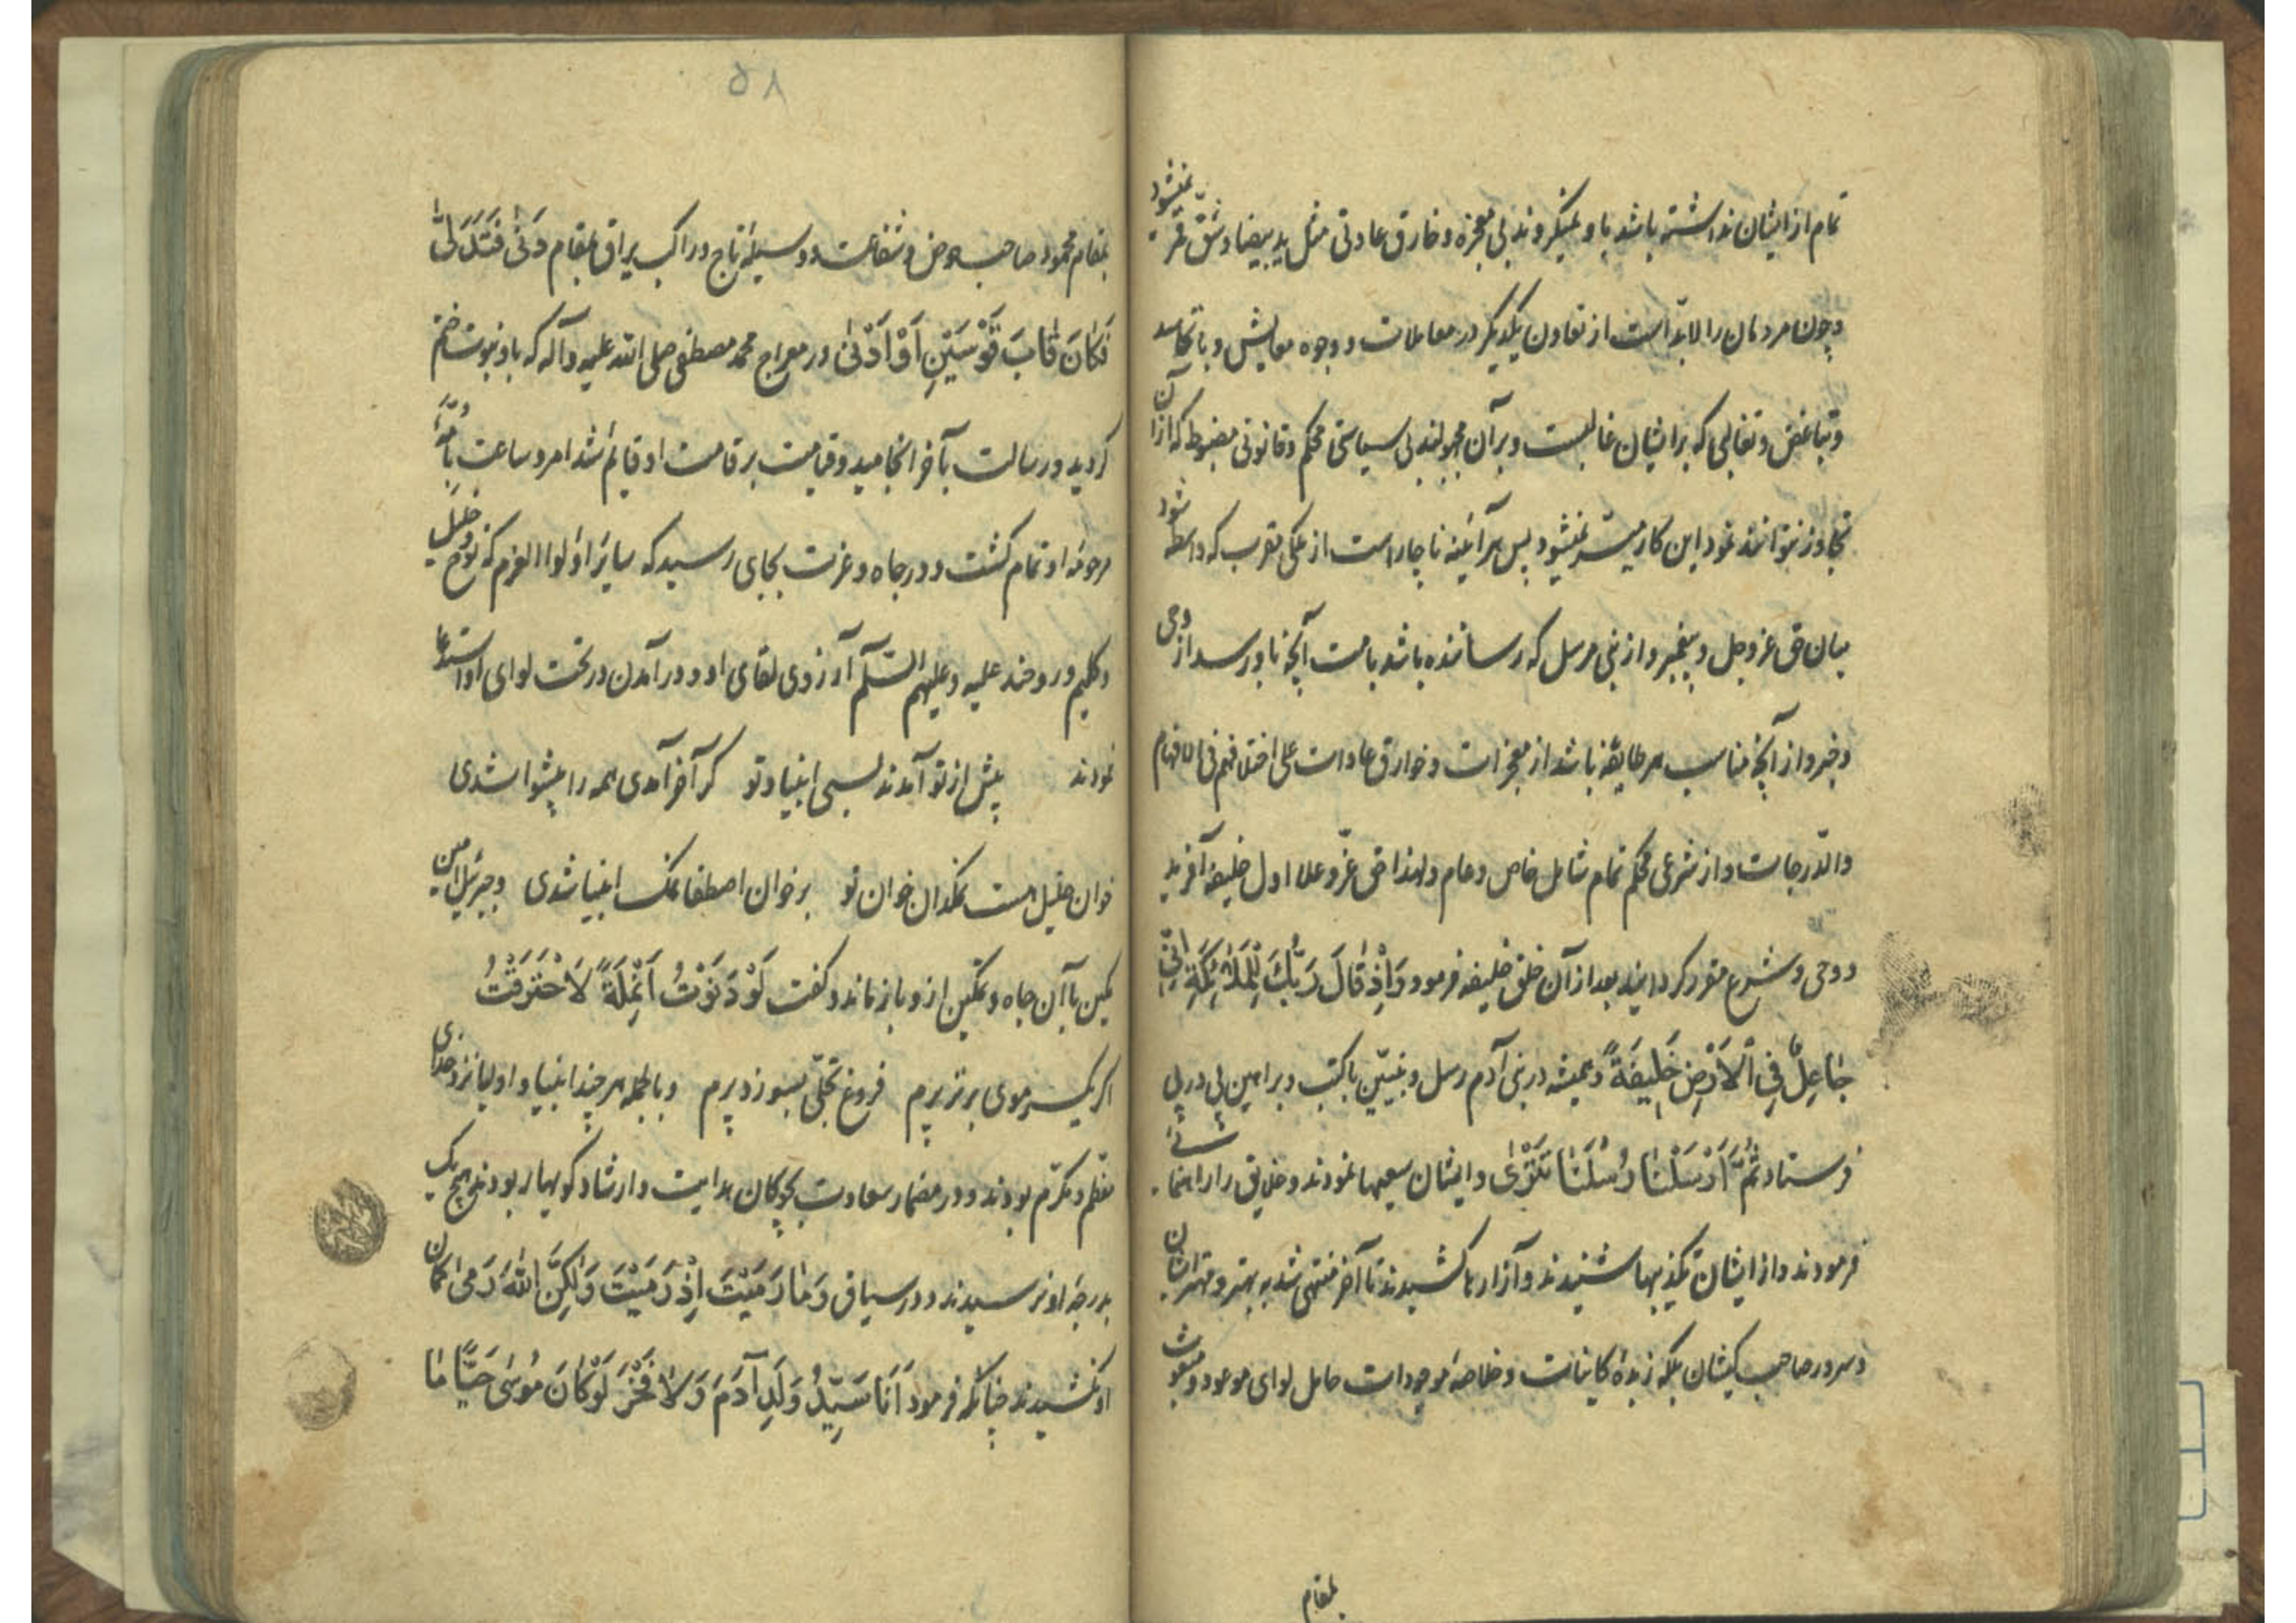 تمام از ایشان نداشته باشد باو نمیکروند بی معجزه و خارق عادتی مثل ید بیضا و شق قمر نمیشود
و چون مردمان را لابد است از تعاون یکدیگر در معاملات و وجوه معایش و با تحاسد
و تباغض و تغالبی که بر ایشان غالبست و بر آن مجبولند بی سیاستی محکم و قانونی مضبوط که از آن
تجاوز نتوانند نمود این کار میسر نمیشود پس هر آینه ناچار است از ملکی مقرب که واسطه شود
میان حق عز و جل و پیغمبر و از نبی مرسل که رساننده باشد بامت آنچه باو رسد از وحی
و خبر و از آنچه مناسب هر طایفه باشد از معجزات و خوارق عادات علی اختلافهم فی الافهام
والدرجات و از شرعی محکم تمام شامل خاص و عام و لهذا حق عز و علا اول خلیفه آفرید
و وحی و شرع مقرر کردانید بعد از آن خلق خلیفه فرمود وَاِذْ قَالَ رَبُّكَ لِلْمَلٰئِكَةِ اِنّی
جَاعِلٌ فِی الْاَرْضِ خَلِیفَةً و همیشه در بنی آدم رسل و نبیین با کتب و براهین پی در پی
فرستاد ثُمَّ اَرْسَلْنَا رُسُلَنَا تَتْرٰی و ایشان سعیها نمودند و خلایق را راهنمائی
فرمودند و از ایشان تکذیبها شنیدند و آزارها کشیدند تا آخر منتهی شد به بهتر و مهتر ایشان
و سرور صاحب کیشان بلکه زبدهٔ کاینات و خلاصهٔ موجودات حامل لوای موعود و مبعوث
بمقام
۵۸
بمقام محمود صاحب حوض و شفاعت و وسیله تاج و راکب براق بمقام دَنٰی فَتَدَلّٰی
فَکَانَ قَابَ قَوْسَیْنِ اَوْ اَدْنٰی در معراج محمد مصطفی صلی الله علیه و آله که باو نبوت ختم
کردید و رسالت بآخر انجامید و قیامت بر قامت او قایم شد امر و ساعت بامّهٔ
مرحومهٔ او تمام کشت و در جاه و عزت بجای رسید که سایر اولوا العزم که نوح و خلیل
و کلیم و روحند علیه و علیهم السلام آرزوی لقای او و در آمدن در تحت لوای او استدعا
نمودند پیش از تو آمدند بسی انبیا و تو کر آخر آمدی همه را پیشوا شدی
خوان خلیل هست نمکدان خوان تو بر خوان اصطفا نمک انبیا شدی و جبرئیل امین
مکین با آن جاه و تمکین از و باز ماند و کفت لَوْ دَنَوْتُ اَنْمِلَةً لَاحْتَرَقْتُ
اکر یک سر موی برتر پرم فروغ تجلی بسوزد پرم و بالجمله هر چند انبیا و اولیا نزد خدای
معظم و مکرم بودند و در مضمار سعادت بچوکان هدایت و ارشاد کویها ربودند هیچ یک
بدرجه او نرسیدند و در سیاق وَمَا رَمَیْتَ اِذْ رَمَیْتَ وَلٰکِنَّ اللهَ رَمٰی کمان
او نکشیدند چنانکه فرمود اَنَا سَیِّدُ وَلَدِ آدَمَ وَلَا فَخْرَ لَوْ کَانَ مُوسٰی حَیًّا مَا